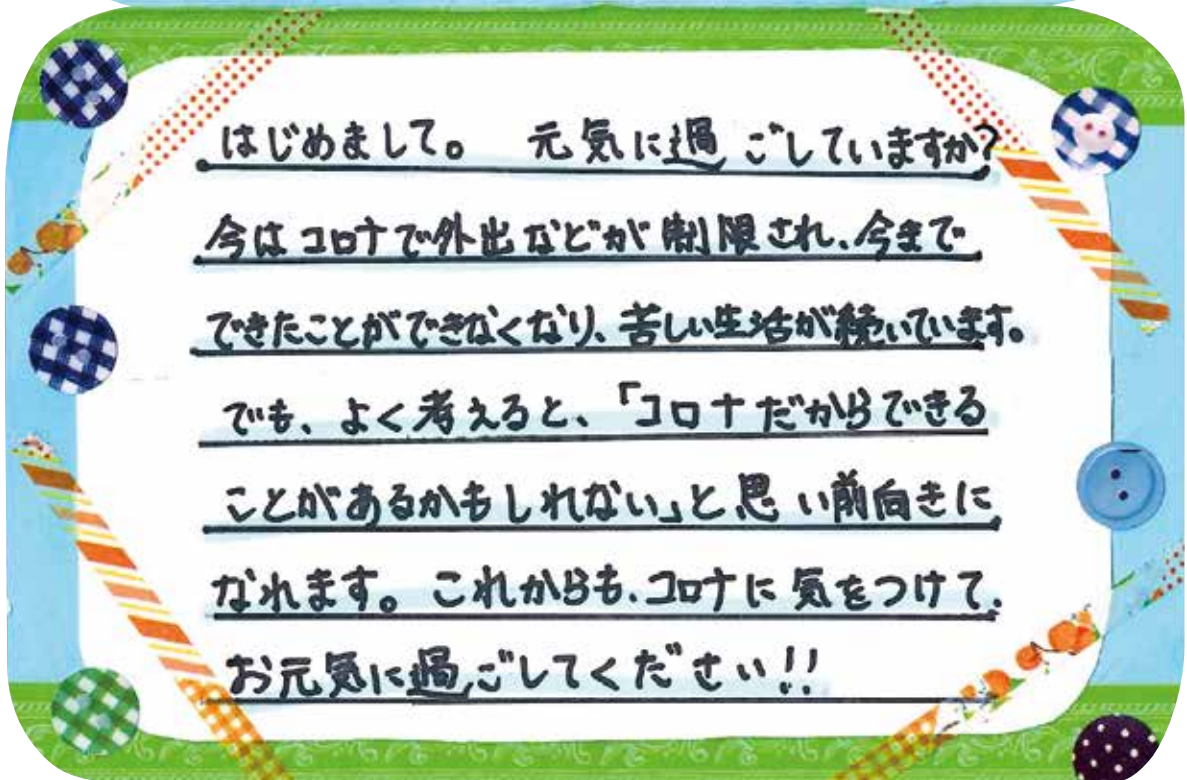 はじめまして。 元気に過ごしていますか?
今はコロナで外出などが制限され、今まで
できたことができなくなり、苦しい生活が続いています。
でも、よく考えると、「コロナだからできる
ことがあるかもしれない」と思い前向きに
なれます。これからも、コロナに気をつけて、
お元気に過ごしてください!!